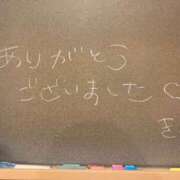 ありがとう
ございました
き